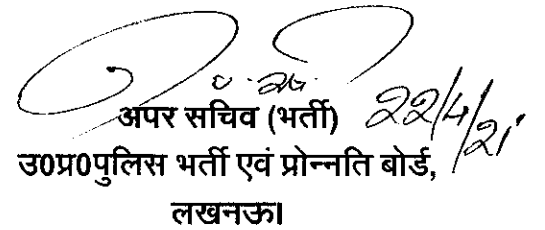 अपर सचिव (भर्ती) 22/4/21
उ0प्र0पुलिस भर्ती एवं प्रोन्नति बोर्ड,
लखनऊ।